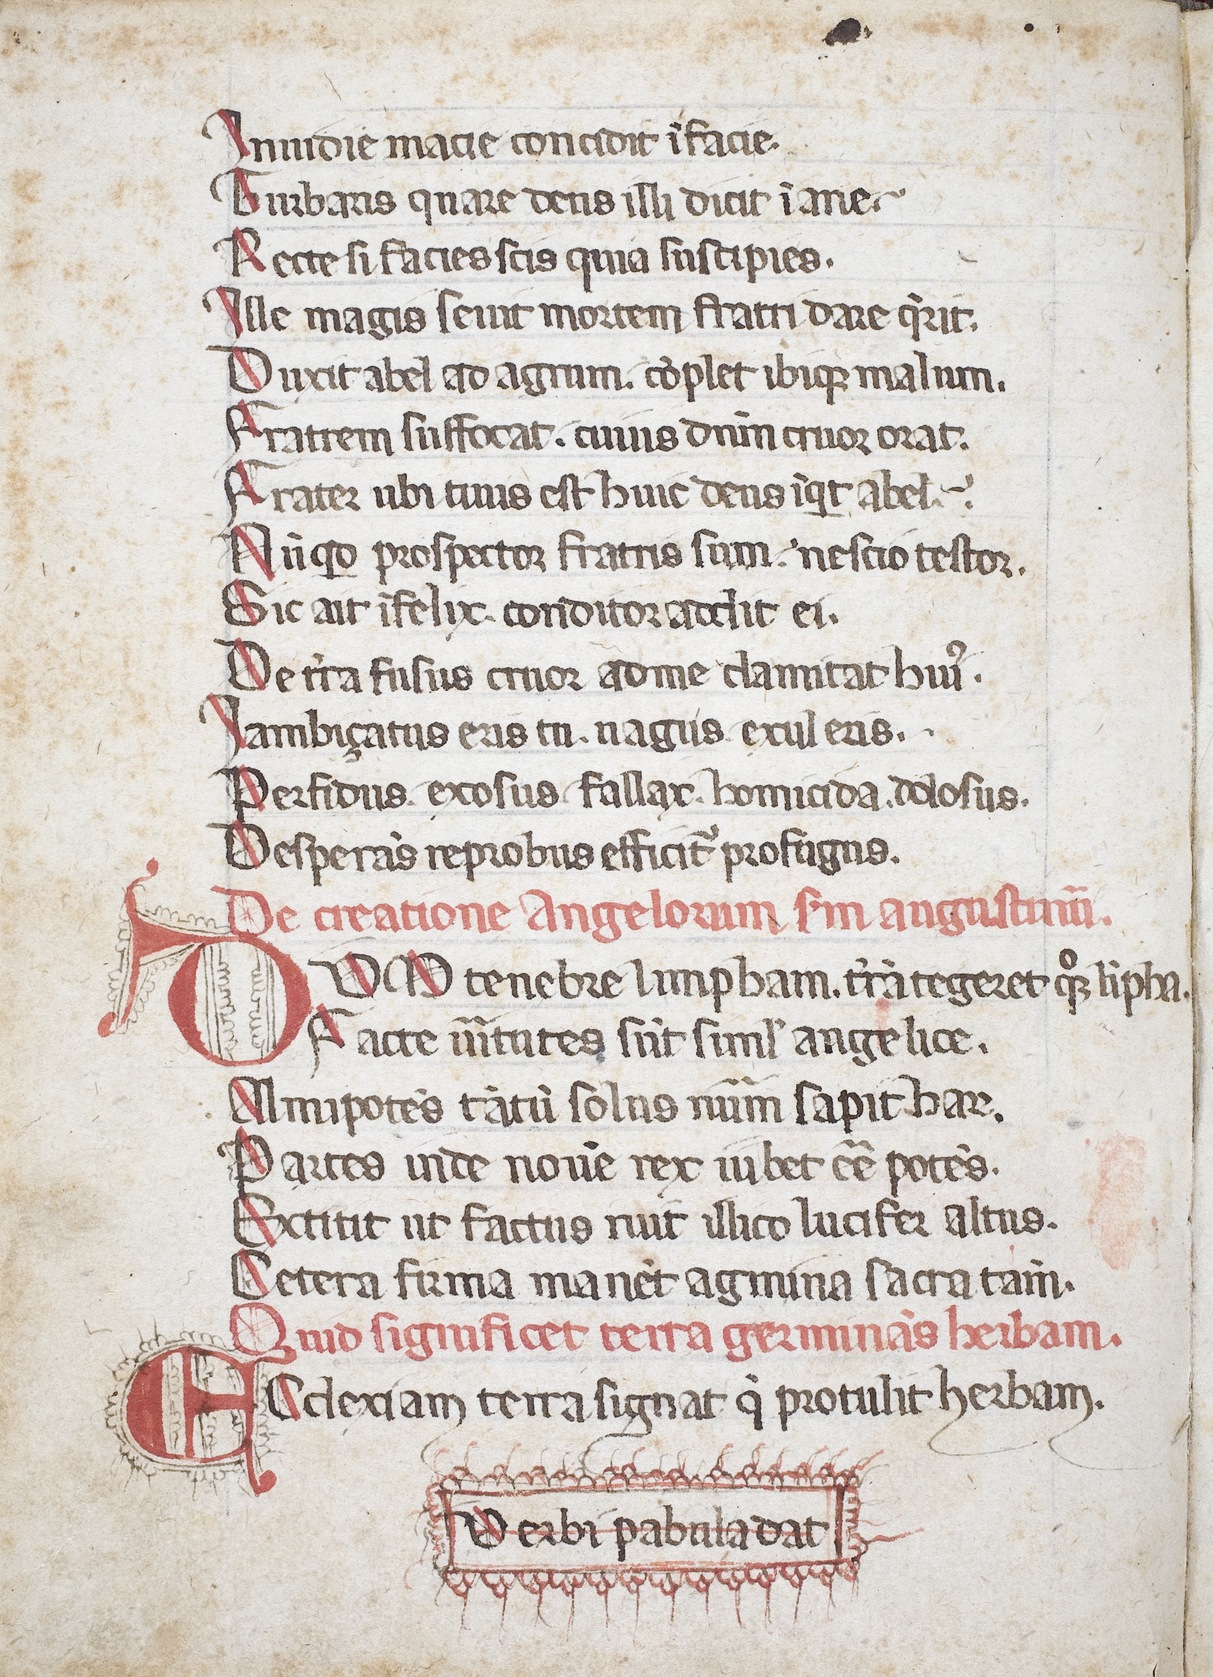 Inuidie macie concidit ĩ facie.
Turbaris quare deus illi dicit ĩ arie
Recte si facies scis quia suscipies.
Ille magis seuit mortem fratri dare q̇rit.
Duxit abel ad agrum. cõplet ibiqꝫ malum.
Fratrem suffocat. cuius dñm cruor orat.
Frater ubi tuus est huic deus ĩqt abel
Nũqd prospector fratris sum. nescio testor.
Sic ait ĩfelix. conditor ei.
De tr̃a fusus cruor ad me clamitat huiꝰ.
Iam eris tu. uagus. exul eris.
Perfidus. exosus. fallax. homicida. dolosus.
Desperãs reprobus efficit᷑ profugus.
De creatione Angelorum sm̃ augustinũ.
DVM tenebre limpham. tr̃ã tegeret qꝫ lĩpha.
Facte ũtutes sũt siml' angelice.
Almipotẽs tãtũ solus nũm sapit har.
Partes inde nouẽ rex iubet eẽ potẽs.
Extitit ut factus ruit illico lucifer altus.
Cetera firma manẽt agmina sacra tam̃.
Quid significet terra germinãs herbam.
ECclexiam terra signat q̇ protulit herbam.
Verbi pabula dat